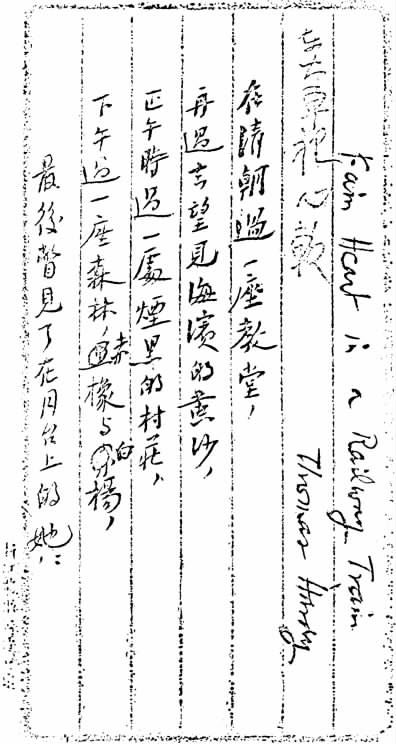 Fain Heart in a Railway Train
Thomas Hardy
在火車裡心軟
在晴朝過一座教堂，
再過去望見海濱的黃沙，
正午時過一處煙黑的村莊，
下午過一座森林，赤橡与白楊，
最後瞥見了在月台上的她，